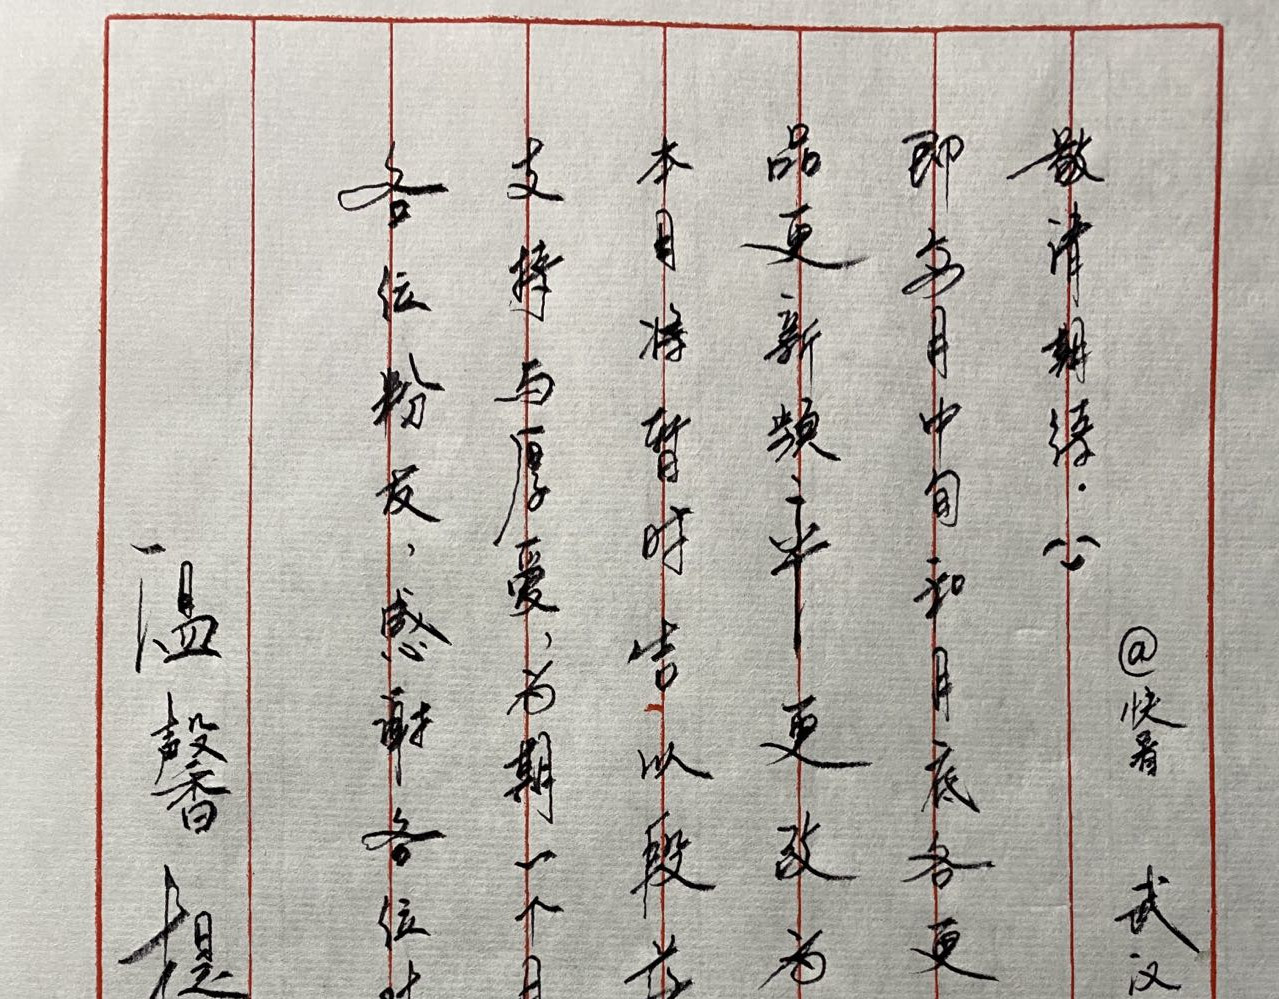 温馨提
各位粉友,感谢各位
支持与厚爱,为期一个月
本月将暂时告以段
品更新频率更改为
即每月中旬和月底各更
敬请期待.
@快看 武汉